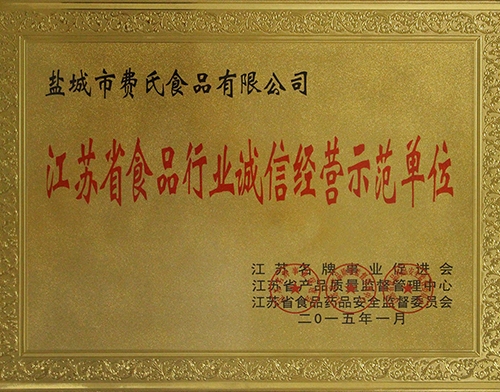 盐城市费氏食品有限公司
江苏省食品行业诚信经营示范单位
江苏名牌事业促进会
江苏省产品质量监督管理中心
江苏省食品药品安全监督委员会
二〇一五年一月